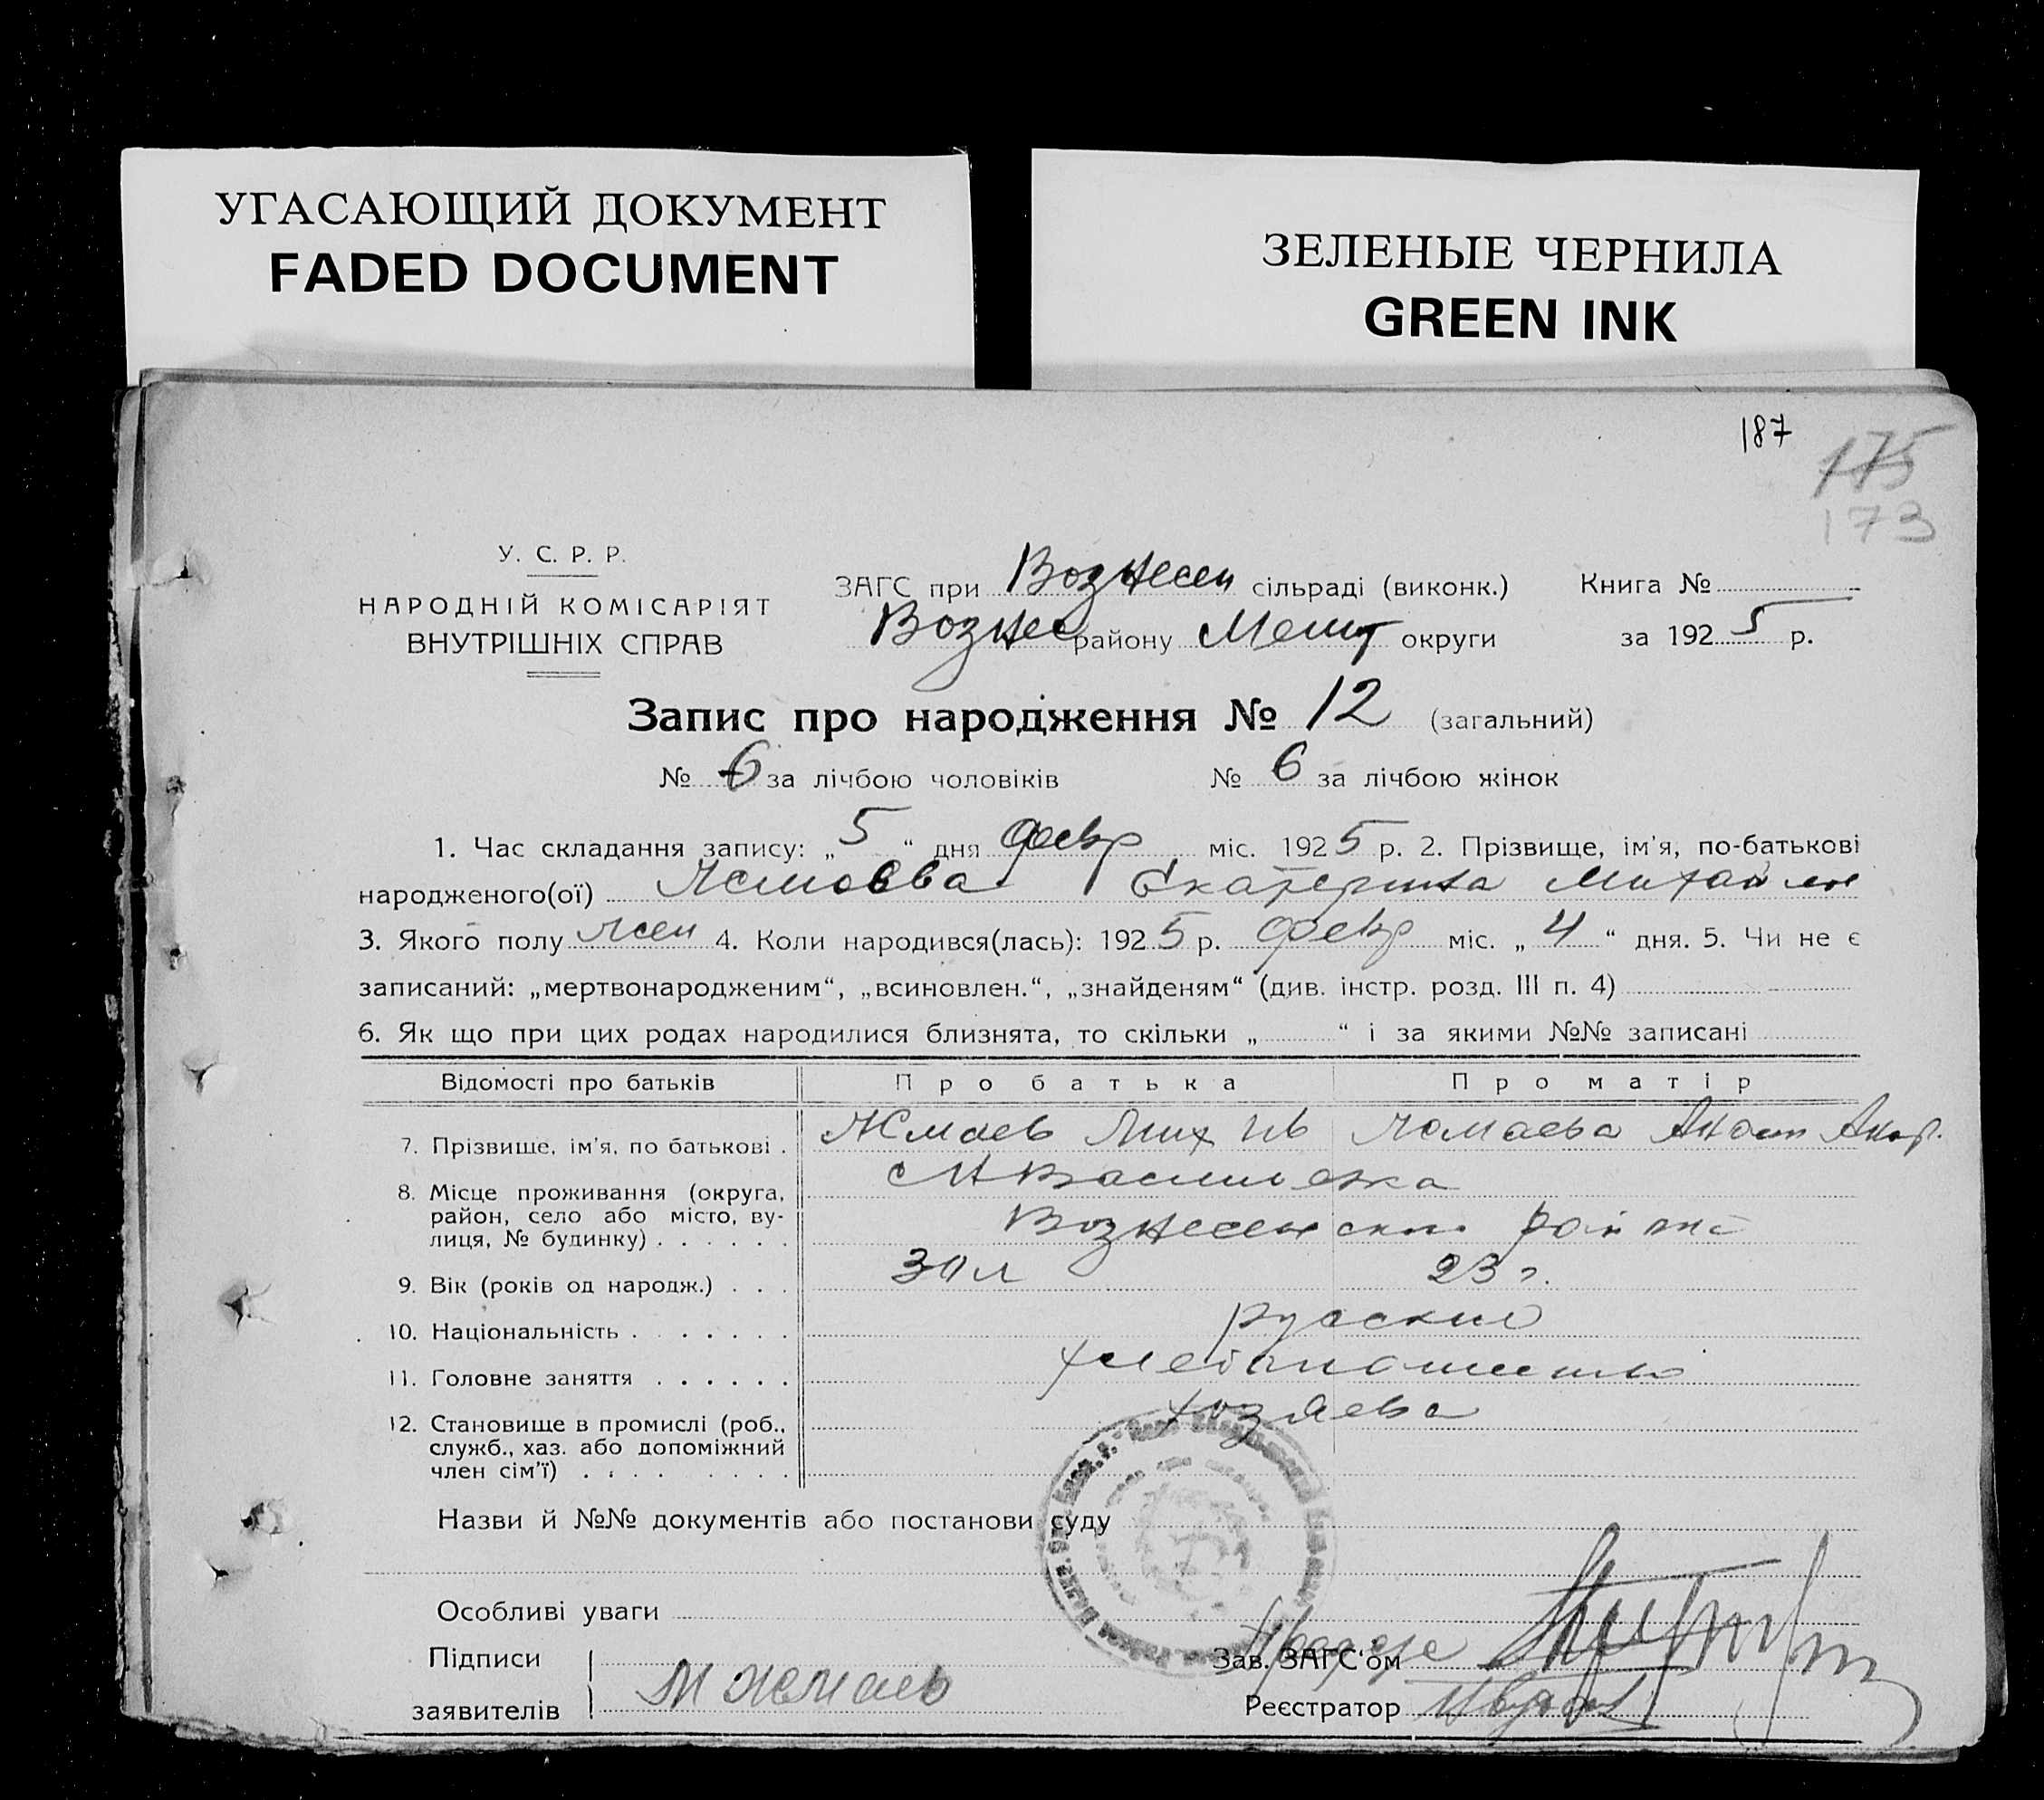 УГАСАЮЩИЙ ДОКУМЕНТ
FADED DOCUMENT
ЗЕЛЕНЫЕ ЧЕРНИЛА
GREEN INK
187
175
173
У. С. Р. Р.
НАРОДНІЙ КОМІСАРІЯТ
ВНУТРІШНІХ СПРАВ
ЗАГС при Вознесен сільраді (виконк.)
Вознес району Мелит округи
Книга №
за 1925 р.
Запис про народження № 12 (загальний)
№ 6 за лічбою чоловіків № 6 за лічбою жінок
1. Час складання запису: „5“ дня февр міс. 1925 р. 2. Прізвище, ім'я, по-батькові
народженого(ої) Екатерина Михайлов
3. Якого полу жен 4. Коли народився(лась): 1925 р. февр міс. „4“ дня. 5. Чи не є
записаний: „мертвонародженим“, „всиновлен.“, „знайденям“ (див. інстр. розд. III п. 4)
6. Як що при цих родах народилися близнята, то скільки „ “ і за якими №№ записані
Відомості про батьків Про батька Про матір
7. Прізвище, ім'я, по батькові . Жмаев Мих Ив Жмаева Анаст Андр.
8. Місце проживання (округа, Васильевка
район, село або місто, ву- Вознесенского района
лиця, № будинку) . . . . . .
9. Вік (років од народж.) . . . 30 л 23 г.
10. Національність . . . . . . . русские
11. Головне заняття . . . . . . хлебопашество
12. Становище в промислі (роб., хозяева
служб., хаз. або допоміжний
член сім'ї) . . . . . . . . .
Назви й №№ документів або постанови суду
Особливі уваги
Підписи
заявителів М Жмаев
Зав. ЗАГС'ом
Реєстратор